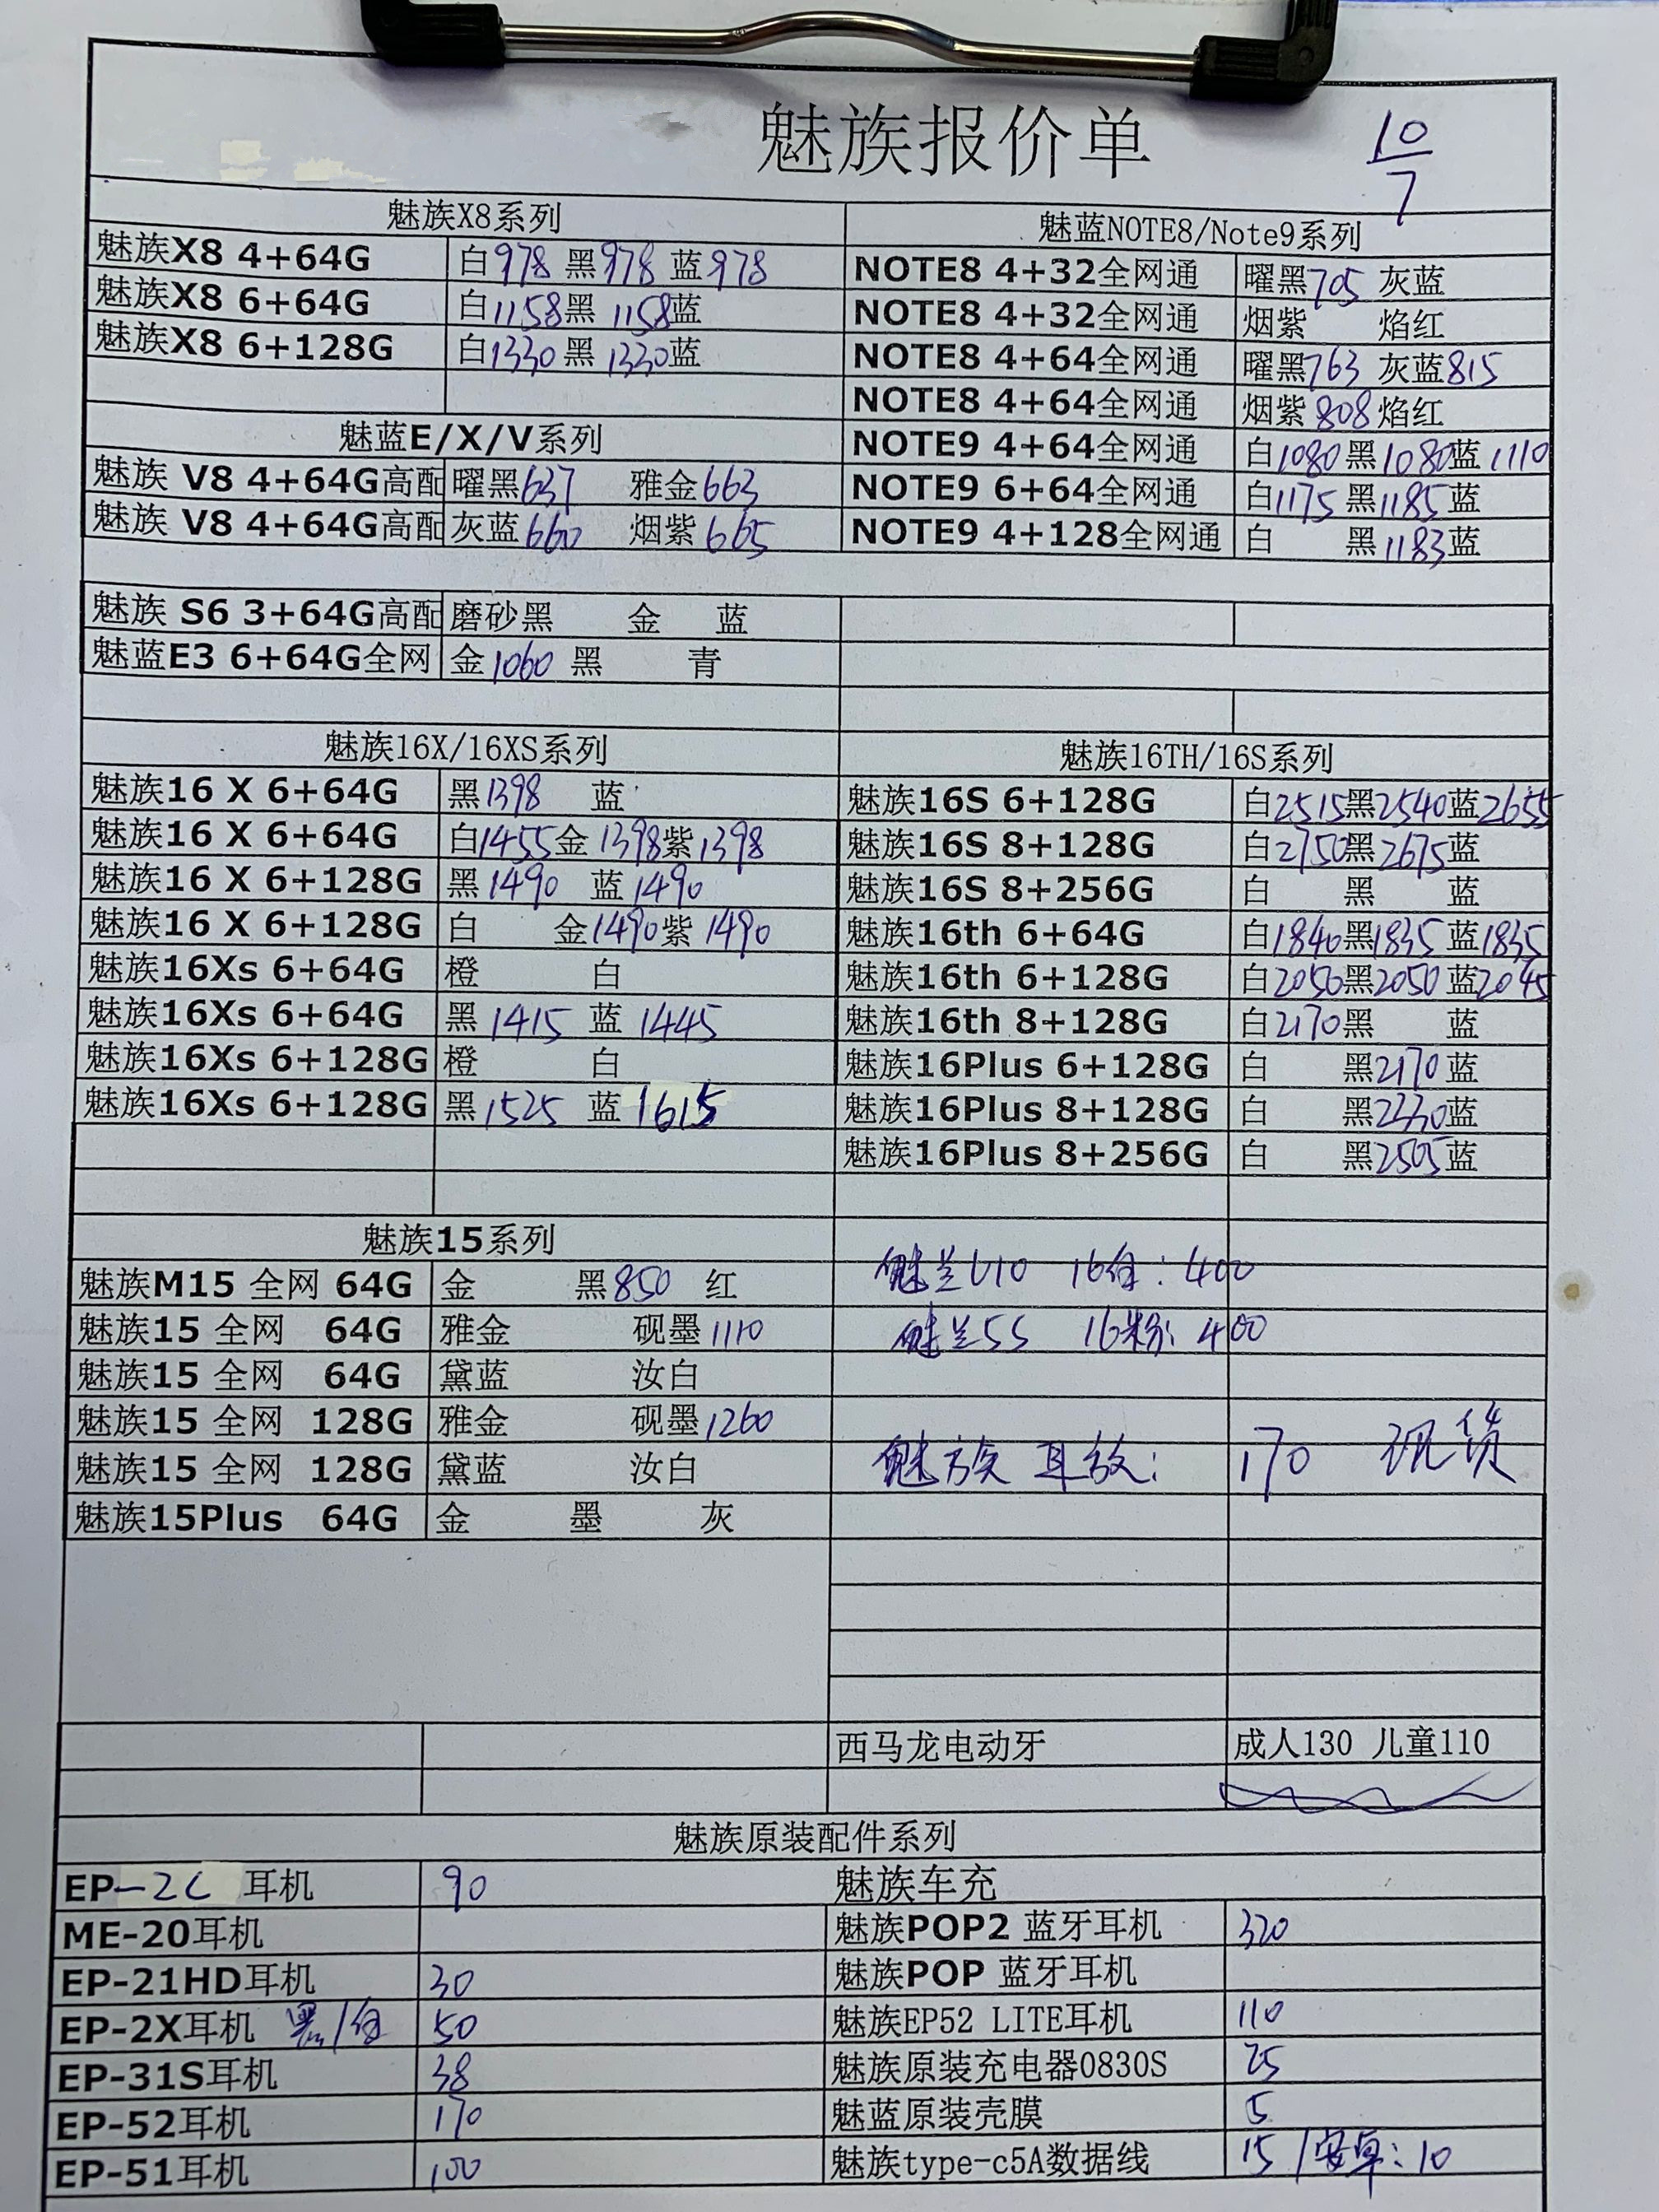 魅族报价单 10/7
魅族X8系列
魅族X8 4+64G 白978 黑978 蓝978
魅族X8 6+64G 白1158黑 1158蓝
魅族X8 6+128G 白1330 黑 1330蓝
魅蓝E/X/V系列
魅族 V8 4+64G高配 曜黑637 雅金663
魅族 V8 4+64G高配 灰蓝660 烟紫665
魅族 S6 3+64G高配 磨砂黑 金 蓝
魅蓝E3 6+64G全网 金1060 黑 青
魅蓝NOTE8/Note9系列
NOTE8 4+32全网通 曜黑705 灰蓝
NOTE8 4+32全网通 烟紫 焰红
NOTE8 4+64全网通 曜黑763 灰蓝815
NOTE8 4+64全网通 烟紫808焰红
NOTE9 4+64全网通 白1080黑1080蓝1110
NOTE9 6+64全网通 白1175 黑1185蓝
NOTE9 4+128全网通 白 黑1183蓝
魅族16X/16XS系列
魅族16 X 6+64G 黑1398 蓝
魅族16 X 6+64G 白1455金 1398紫1398
魅族16 X 6+128G 黑1490 蓝1490
魅族16 X 6+128G 白 金1490紫1490
魅族16Xs 6+64G 橙 白
魅族16Xs 6+64G 黑 1415 蓝 1445
魅族16Xs 6+128G 橙 白
魅族16Xs 6+128G 黑1525 蓝1615
魅族16TH/16S系列
魅族16S 6+128G 白2515黑2540蓝2655
魅族16S 8+128G 白2750黑2675蓝
魅族16S 8+256G 白 黑 蓝
魅族16th 6+64G 白1840黑1835 蓝1835
魅族16th 6+128G 白2050黑2050 蓝2045
魅族16th 8+128G 白2170黑 蓝
魅族16Plus 6+128G 白 黑2170蓝
魅族16Plus 8+128G 白 黑2330蓝
魅族16Plus 8+256G 白 黑2505蓝
魅族15系列
魅族M15 全网 64G 金 黑850 红
魅族15 全网 64G 雅金 砚墨1110
魅族15 全网 64G 黛蓝 汝白
魅族15 全网 128G 雅金 砚墨1260
魅族15 全网 128G 黛蓝 汝白
魅族15Plus 64G 金 墨 灰
魅兰U10 16白: 400
魅兰5S 16粉: 400
魅族 耳放: 170 现货
西马龙电动牙 成人130 儿童110
魅族原装配件系列
EP-2C 耳机 90
ME-20耳机
EP-21HD耳机 30
EP-2X耳机 黑/白 50
EP-31S耳机 38
EP-52耳机 170
EP-51耳机 100
魅族车充
魅族POP2 蓝牙耳机 320
魅族POP 蓝牙耳机
魅族EP52 LITE耳机 110
魅族原装充电器0830S 25
魅蓝原装壳膜 5
魅族type-c5A数据线 15 /安卓: 10